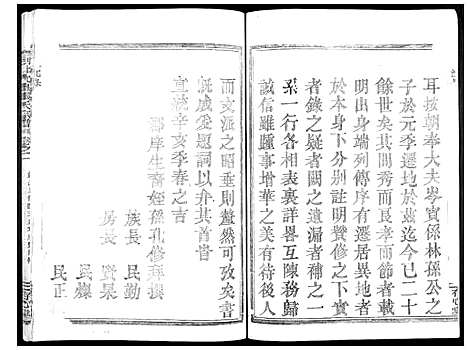 耳按朝奉大夫岑賓係林孫公之
子於元季遷地於茲迄今已二十
餘世矣其間秀而良孝而順者註
明出身端列傳序有遷居異地者
於本身下分別註明贊修之下實
者錄之疑者闕之遺漏者補之一
系一行各相表裏詳畧互陳務歸
誠信雖踵事增華之美有待後人
而支派之昭垂則釐然可攷矣書
既成爰題詞以弁其首
宣統辛亥季春之吉
郡庠生裔姪孫孔修
族長 民勤
房長
民燦
民正